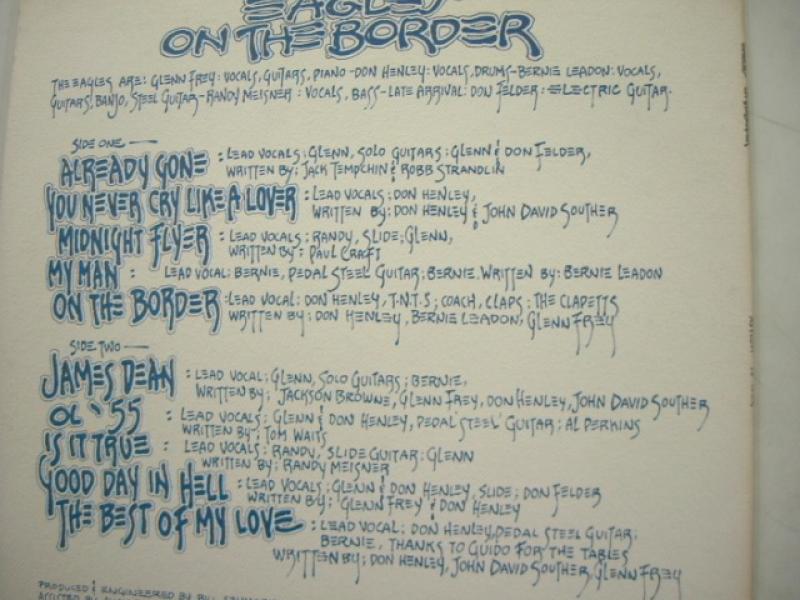 EAGLES
ON THE BORDER
THE EAGLES ARE: GLENN FREY: VOCALS, GUITARS, PIANO - DON HENLEY: VOCALS, DRUMS - BERNIE LEADON: VOCALS,
GUITARS, BANJO, STEEL GUITAR - RANDY MEISNER: VOCALS, BASS - LATE ARRIVAL: DON FELDER: ELECTRIC GUITAR.
SIDE ONE —
ALREADY GONE : LEAD VOCALS; GLENN, SOLO GUITARS: GLENN & DON FELDER,
WRITTEN BY; JACK TEMPCHIN & ROBB STRANDLIN
YOU NEVER CRY LIKE A LOVER : LEAD VOCALS; DON HENLEY,
WRITTEN BY: DON HENLEY & JOHN DAVID SOUTHER
MIDNIGHT FLYER : LEAD VOCALS; RANDY, SLIDE; GLENN,
WRITTEN BY: PAUL CRAFT
MY MAN : LEAD VOCAL; BERNIE, PEDAL STEEL GUITAR; BERNIE. WRITTEN BY: BERNIE LEADON
ON THE BORDER : LEAD VOCAL: DON HENLEY, T.N.T.S; COACH, CLAPS: THE CLAPETTS
WRITTEN BY; DON HENLEY, BERNIE LEADON, GLENN FREY
SIDE TWO —
JAMES DEAN : LEAD VOCAL; GLENN, SOLO GUITARS; BERNIE,
WRITTEN BY; JACKSON BROWNE, GLENN FREY, DON HENLEY, JOHN DAVID SOUTHER
OL '55 : LEAD VOCALS; GLENN & DON HENLEY, PEDAL STEEL GUITAR; AL PERKINS
WRITTEN BY; TOM WAITS
IS IT TRUE : LEAD VOCALS: RANDY, SLIDE GUITAR: GLENN
WRITTEN BY; RANDY MEISNER
GOOD DAY IN HELL : LEAD VOCALS; GLENN & DON HENLEY, SLIDE; DON FELDER
WRITTEN BY; GLENN FREY & DON HENLEY
THE BEST OF MY LOVE : LEAD VOCAL: DON HENLEY, PEDAL STEEL GUITAR;
BERNIE, THANKS TO GUIDO FOR THE TABLES
WRITTEN BY; DON HENLEY, JOHN DAVID SOUTHER, GLENN FREY
PRODUCED & ENGINEERED BY BILL